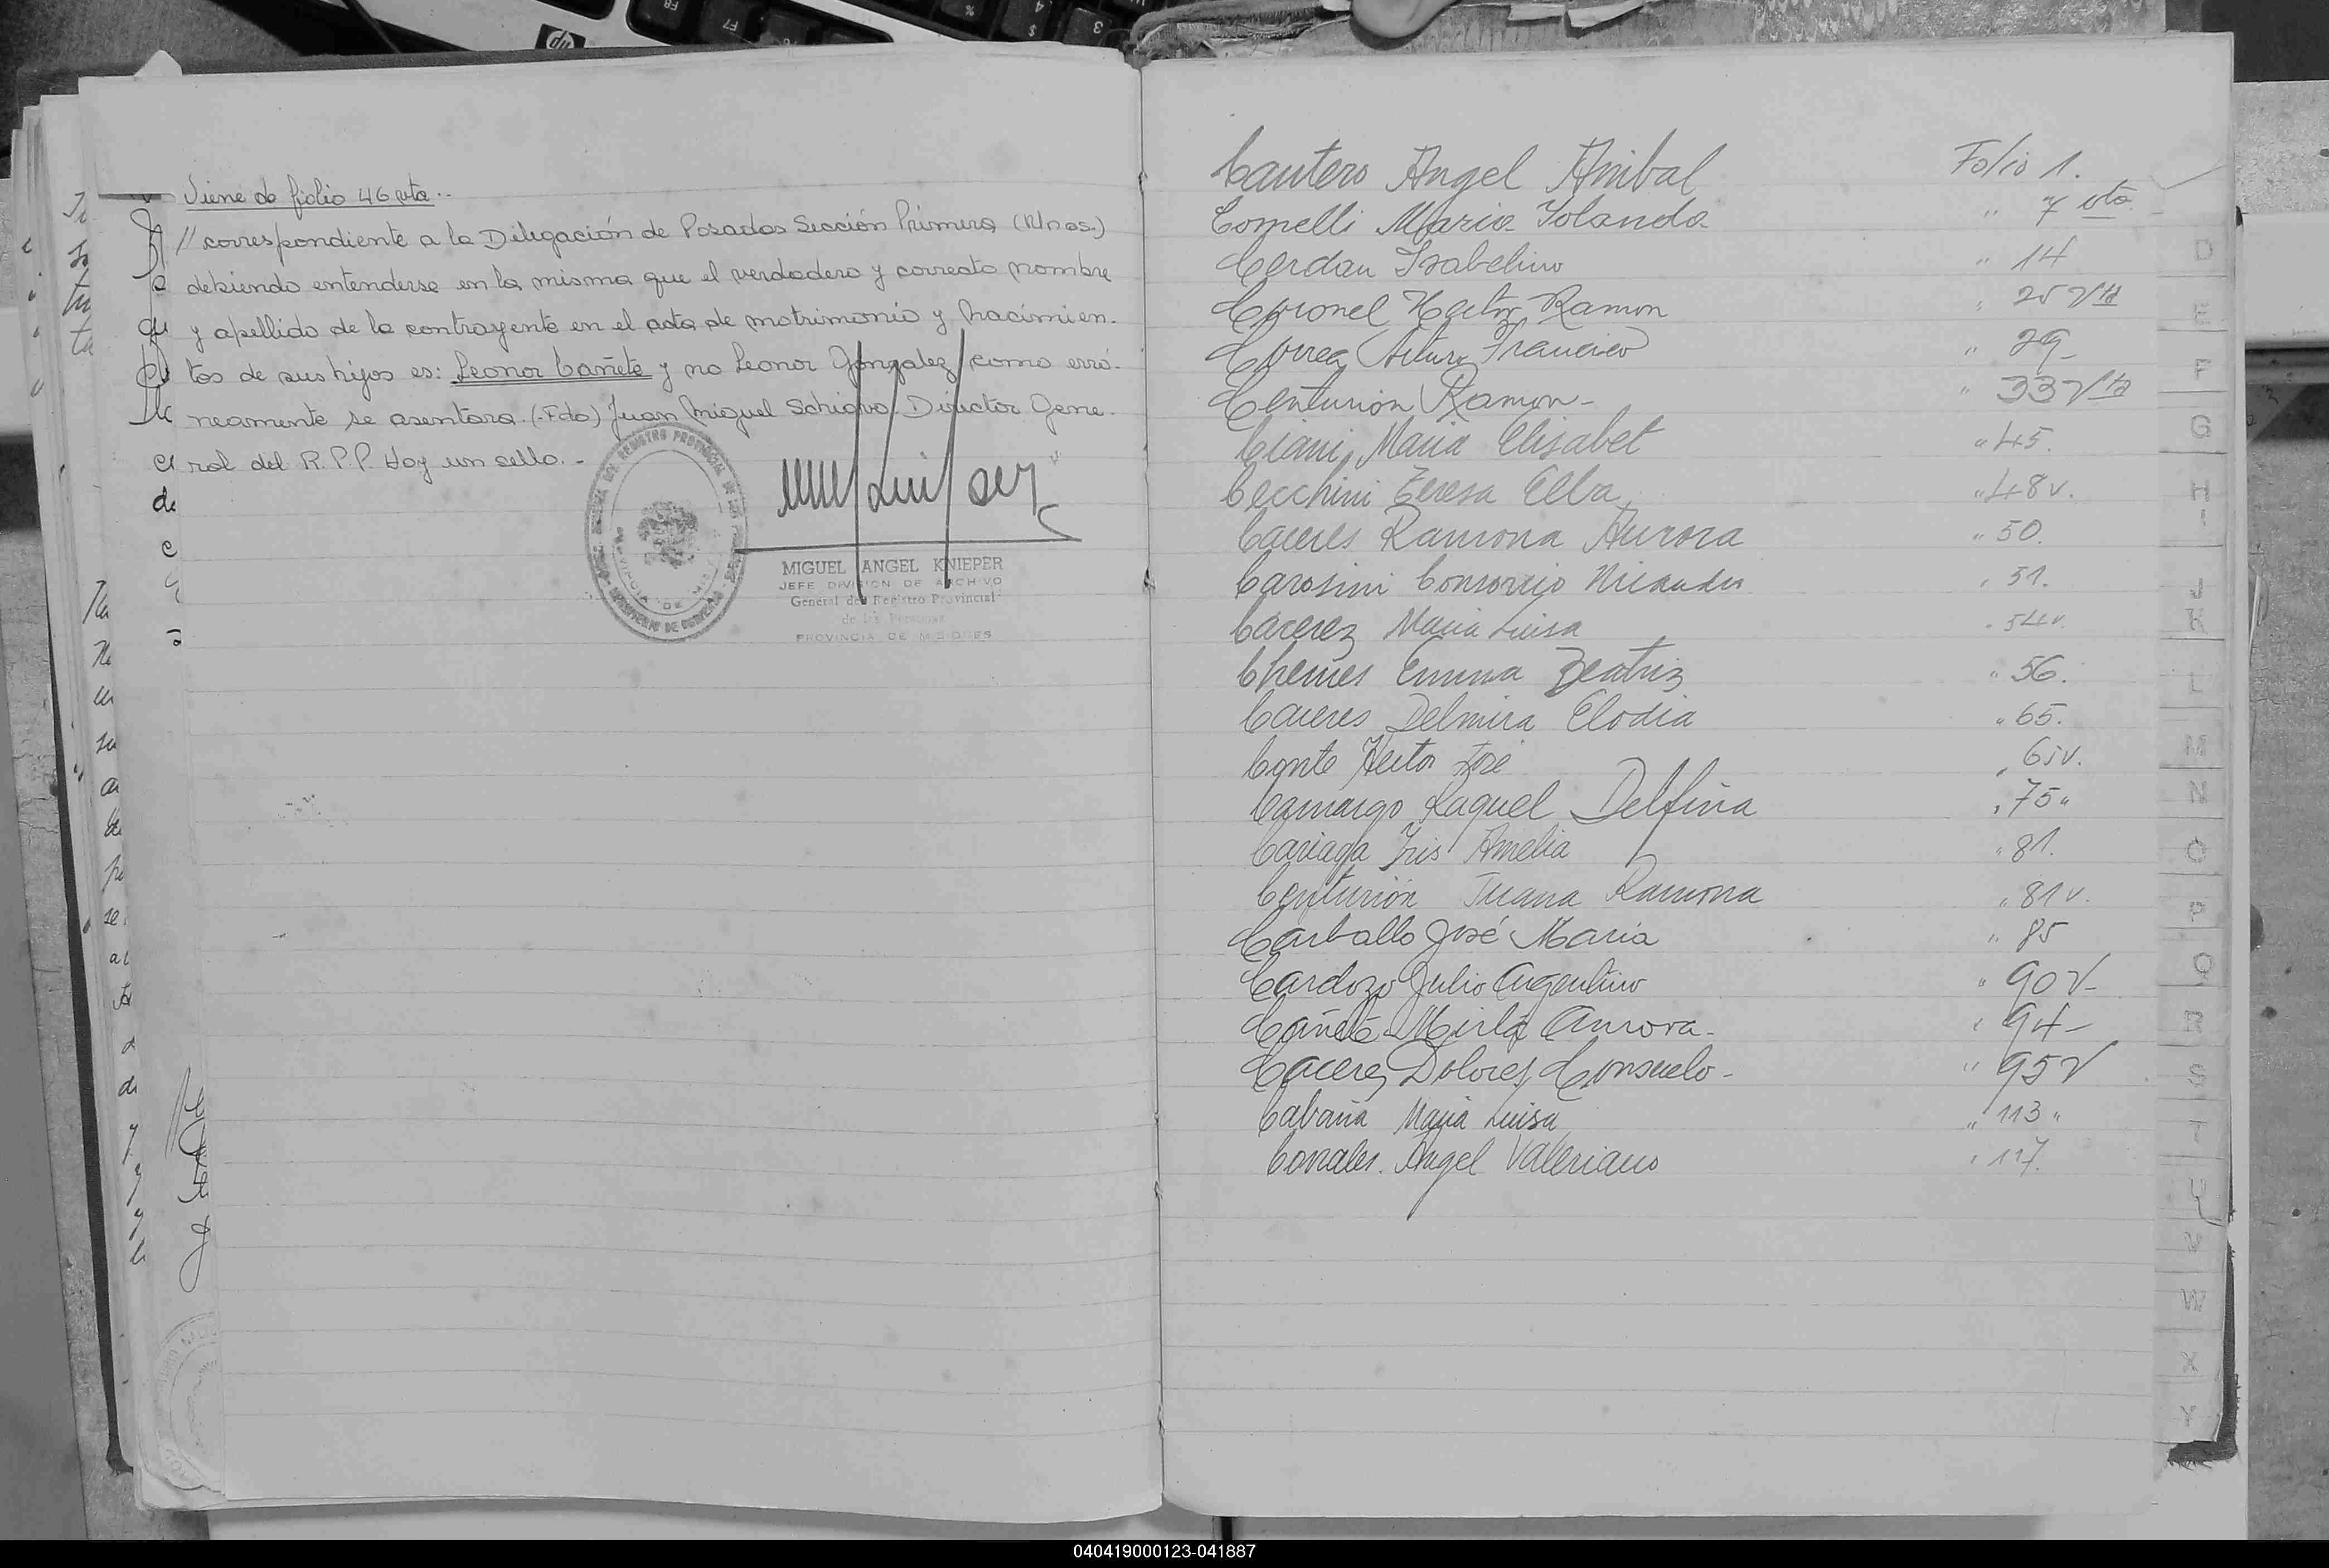 Viene de folio 46 vta..
// correspondiente a la Delegación de Posadas Sección Primera (Mnes.)
debiendo entenderse en la misma que el verdadero y correcto nombre
y apellido de la contrayente en el acta de matrimonio y nacimien-
tos de sus hijos es: Leonor Cañete y no Leonor Gonzalez como erró-
neamente se asentara. (Fdo) Juan Miguel Schiavo Director Gene-
ral del R.P.P. Hay un sello.-
MIGUEL ANGEL KNIEPER
JEFE DIVISION DE ARCHIVO
General del Registro Provincial
de las Personas
PROVINCIA DE MISIONES
Cantero Angel Anibal Folio 1.
Comelli Maria Yolanda " 7 vta
Cerdan Isabelino " 14
Coronel Hector Ramon " 25 Vta
Correa Arturo Francisco " 29-
Centurion Ramon- " 33 Vta
Ciani Maria Elisabet " 45.
Cecchini Teresa Elba " 48 v.
Caceres Ramona Aurora " 50.
Carosini Consorcio " 51.
Cacerez Maria Luisa " 54 v.
Chemes Emma Beatriz " 56.
Caceres Delmira Elodia " 65.
Conte Hector José " 65v.
Camargo Raquel Delfina " 75"
Cariaga Iris Amelia " 81.
Centurión Juana Ramona " 81 v.
Carballo José Maria " 85
Cardozo Julio Argentino " 90 V-
Cañete Mirta Aurora- " 94-
Caceres Dolores Consuelo- " 95 V
Cabaña Maria Luisa " 113 "
Corrales Angel Valeriano " 117.
D
E
F
G
H
I
J
K
L
M
N
O
P
Q
R
S
T
U
V
W
X
Y
040419000123-041887